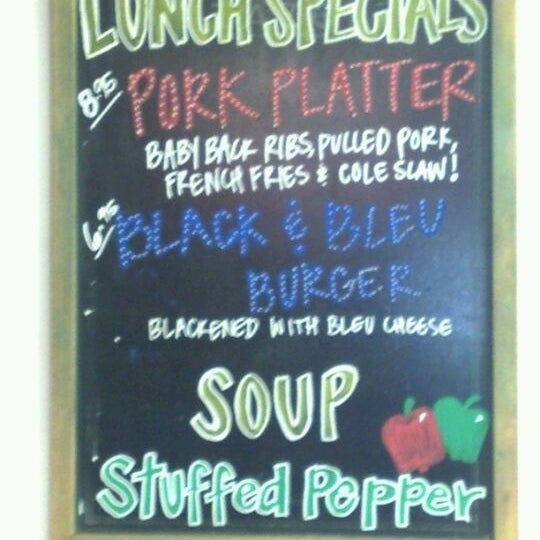 LUNCH SPECIALS
8.95 PORK PLATTER
BABY BACK RIBS, PULLED PORK,
FRENCH FRIES & COLE SLAW!
6.95 BLACK & BLEU
BURGER
BLACKENED WITH BLEU CHEESE
SOUP
Stuffed Pepper